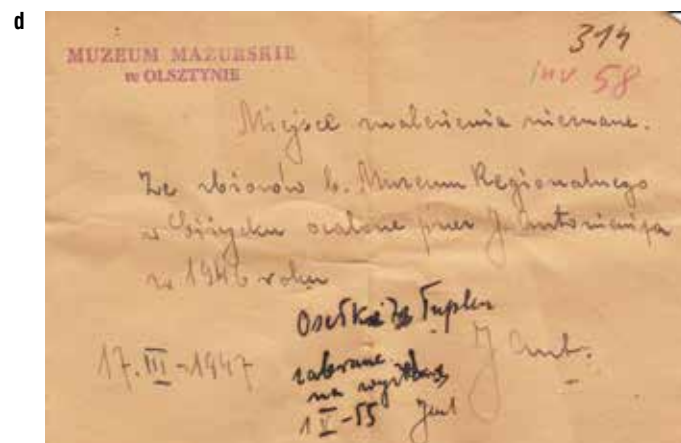 d
MUZEUM MAZURSKIE
w OLSZTYNIE
314
inv 58
Miejsce znalezienia nieznane.
Ze zbiorów b. Muzeum Regionalnego
w Giżycku ocalone przez J. Antoniewicza
w 1946 roku
Osełka z łupku
17.III-1947
J Ant.
zabrane
na wystawę
1 V-55